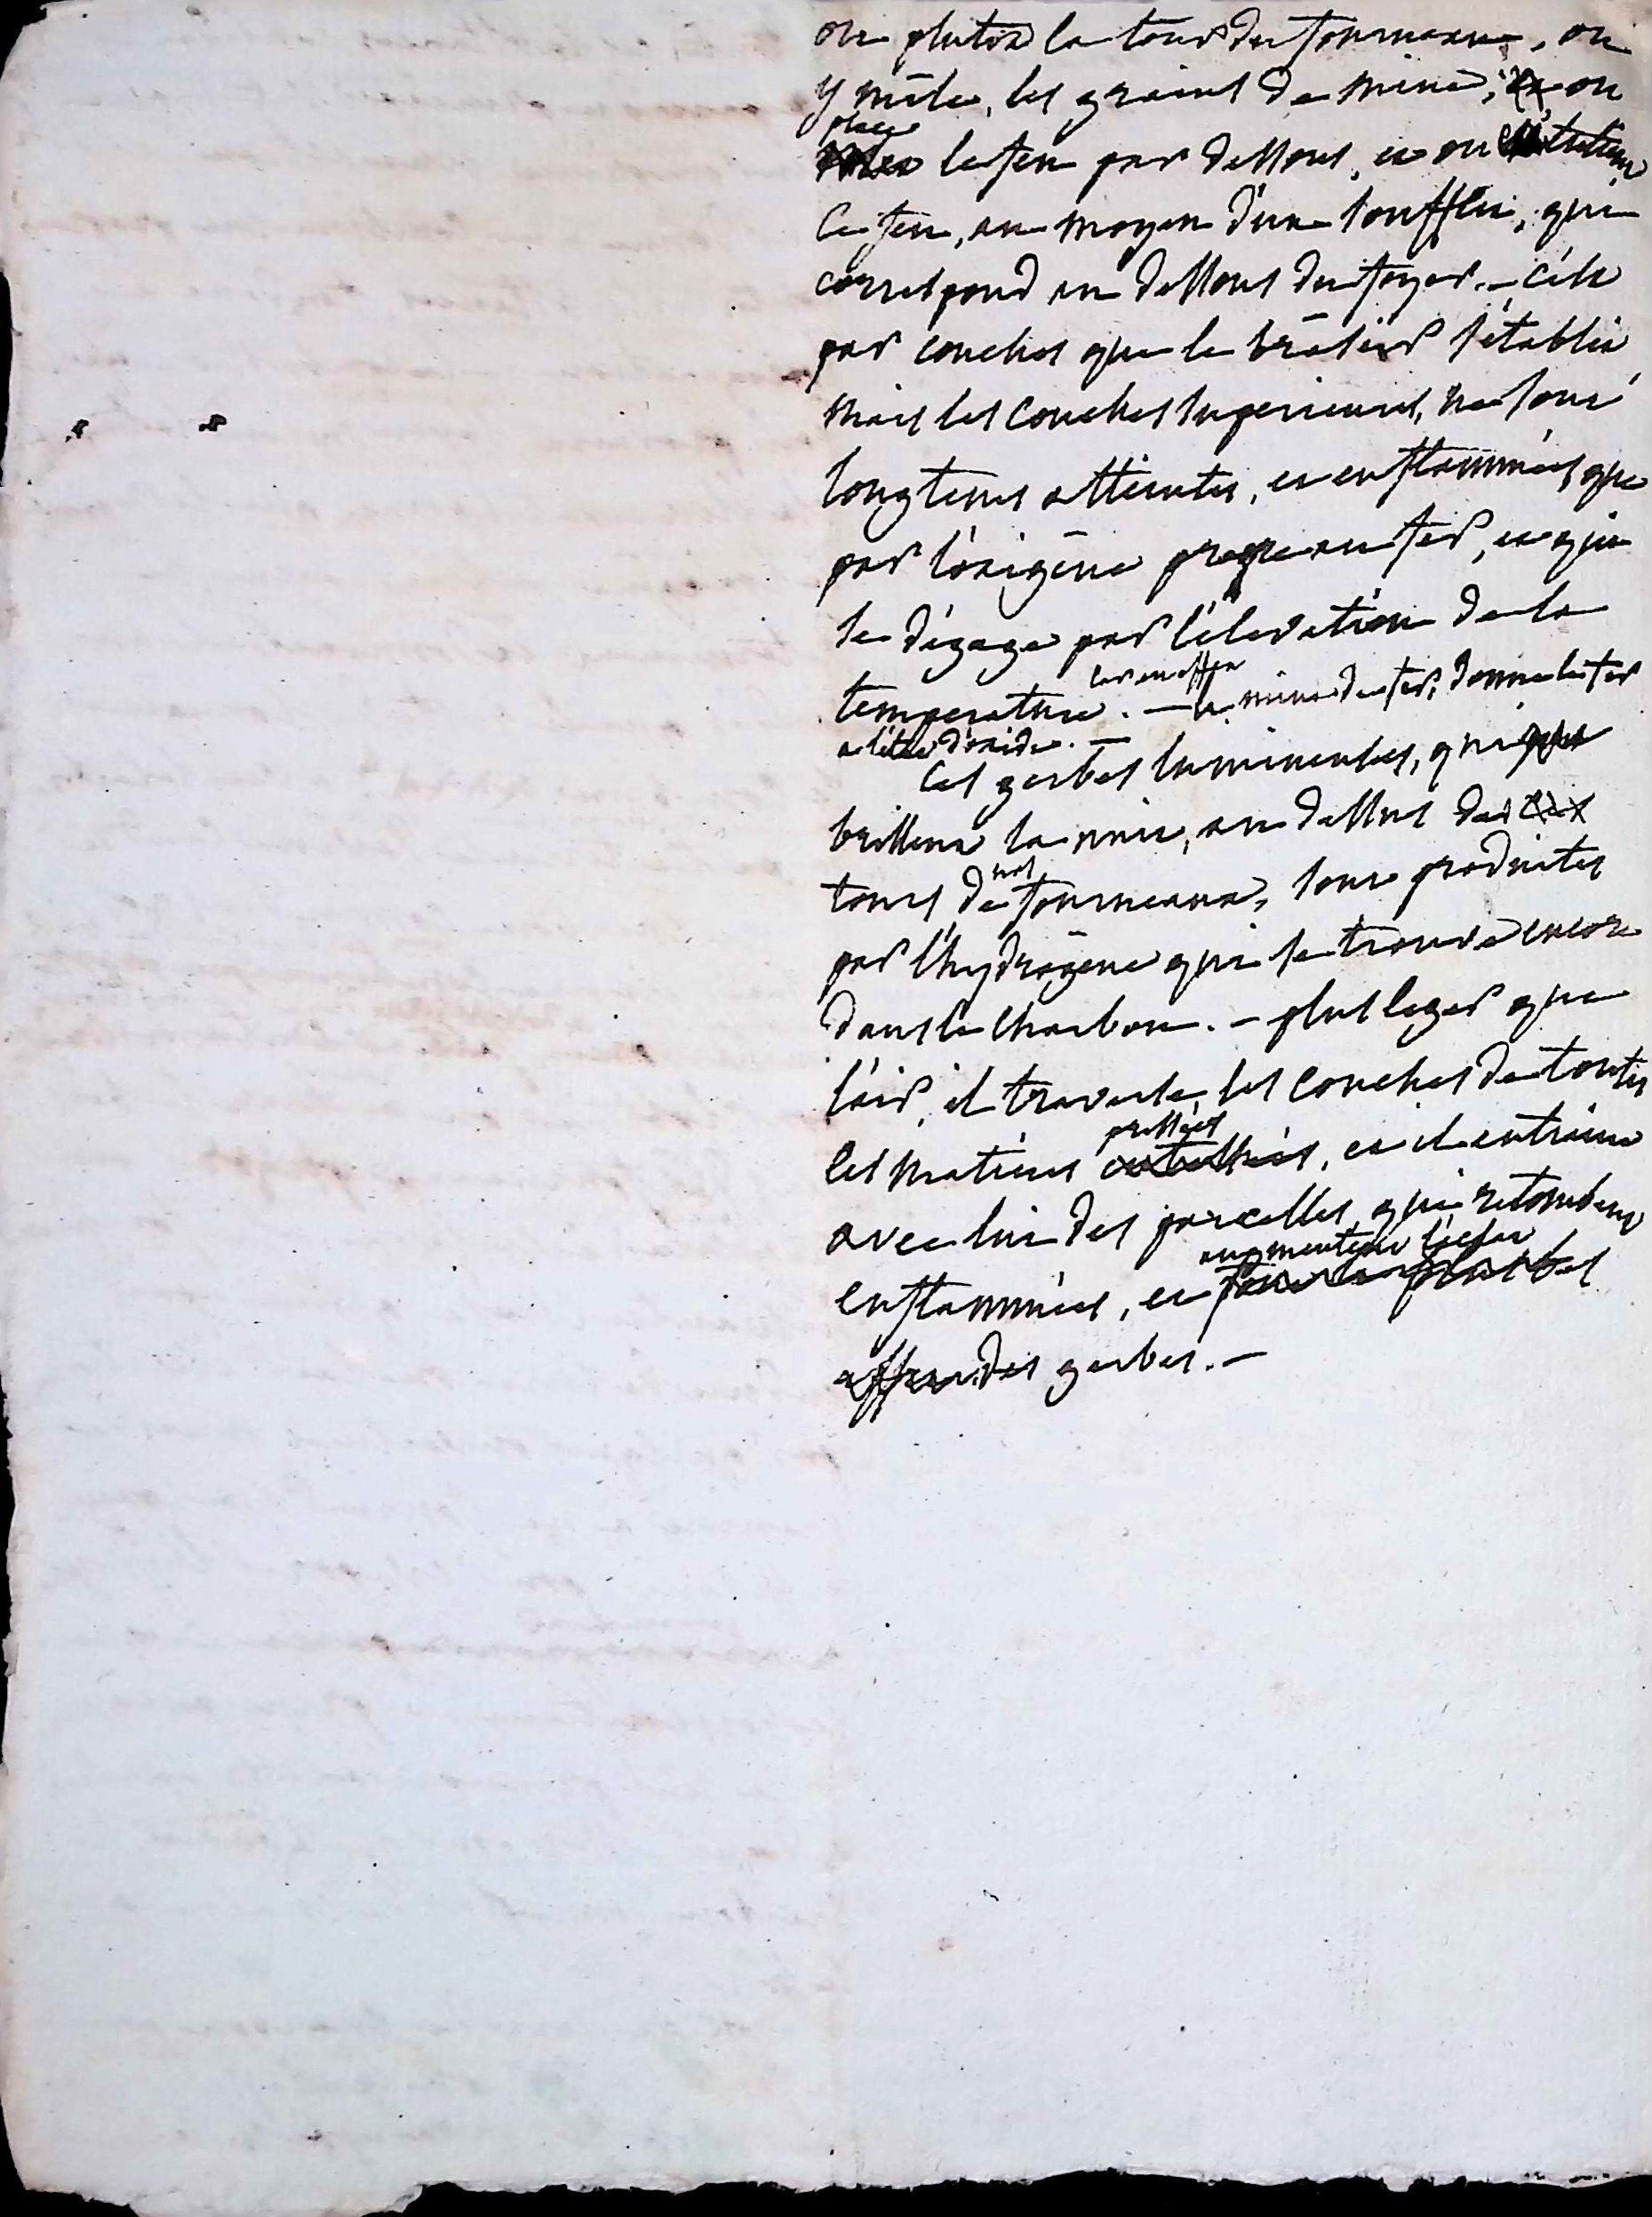 ou plutot la tour du fourneau, on
y mêle, les grains de mine, et on
place
le feu par dessous, et on entretient
ce feu, au moyen d'un soufflet, qui
correspond au dessous du foyer. – c'est
par couches que le brâsier s'établit
mais les couches superieures, ne sont
longtems atteintes, et enflammées que
par l'oxigène propre au fer, et qui
se dégage par l'élevation de la
temperature. – la mine de fer, donne le fer
a l'état d'oxide. –
Ces gerbes lumineuses, qui
brillent la nuit, au dessus des
nos
tours de fourneaux, sont produites
par l'hydrogène qui se trouve encore
dans le charbon. – plus leger que
l'air, il traverse, les couches de toutes
pressées
les matieres, et il entraine
avec lui des parcelles qui retombent
augmentent l'effet
enflammées, et
des gerbes. –